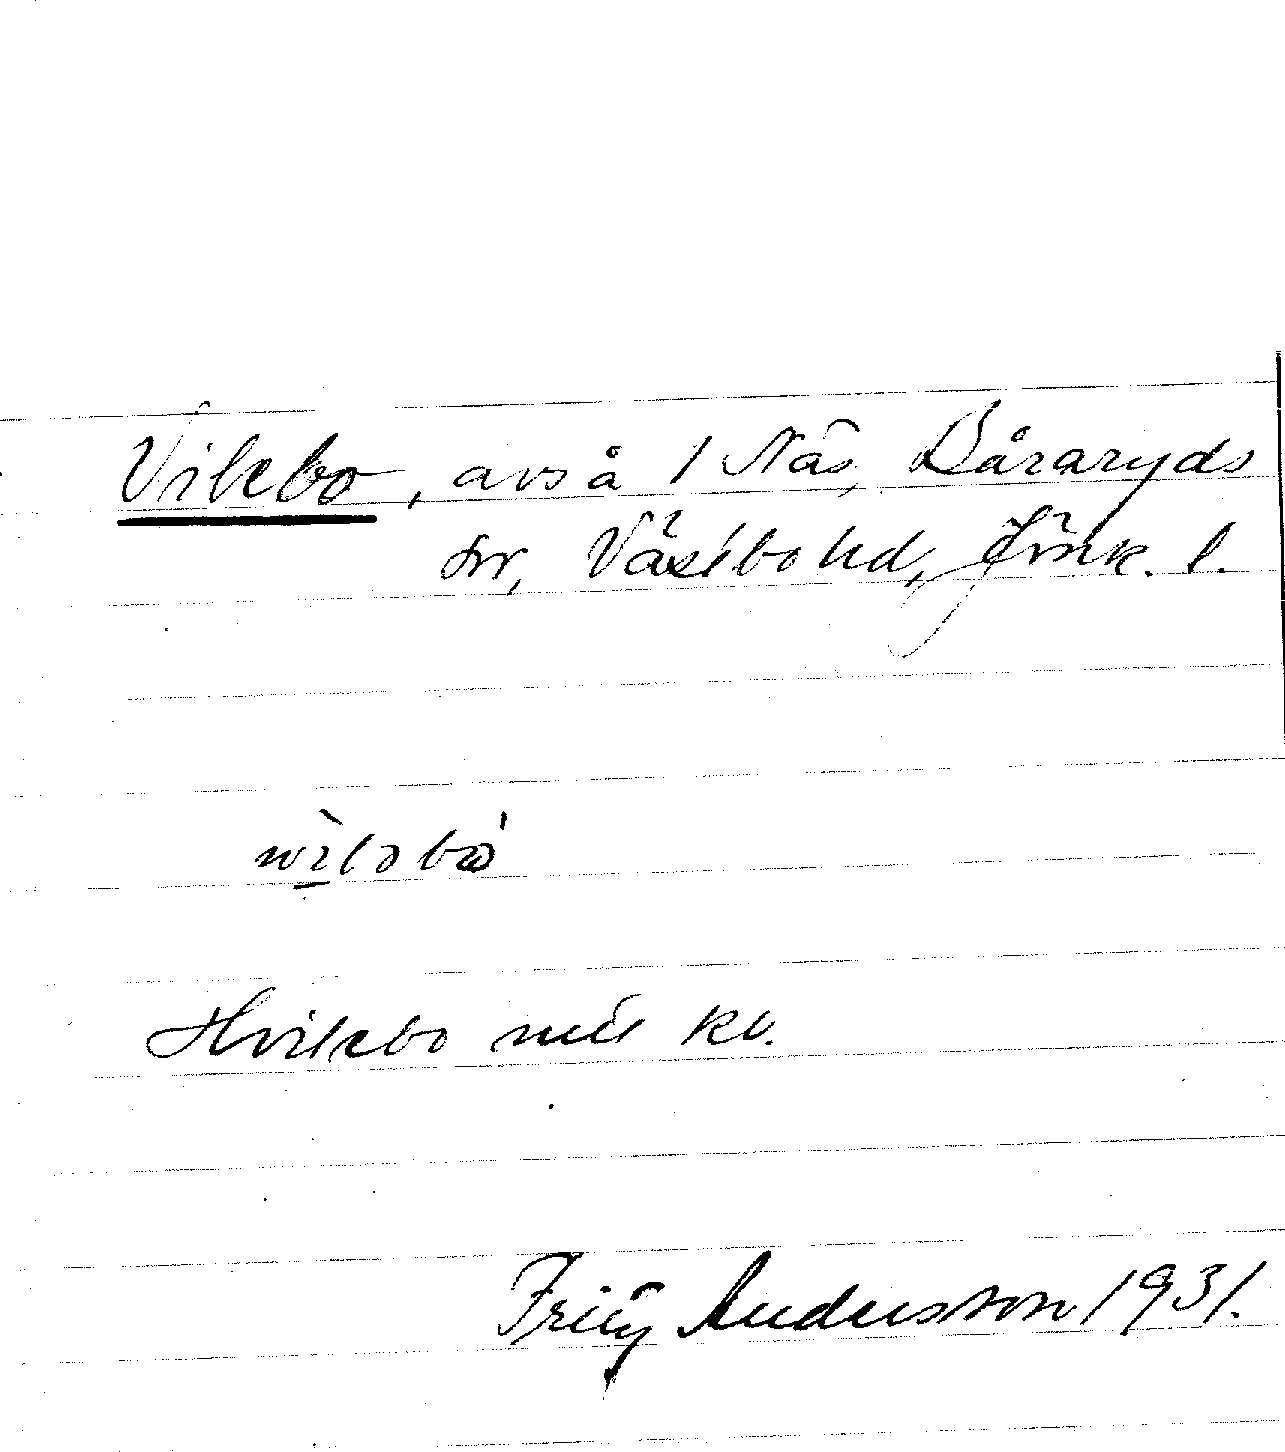 Vilebo, avs å 1 Näs, Båraryds
sn, Västbo hd, Jönk. l.
Hvilebo mtl kb.
Fritz Andersson 1931.